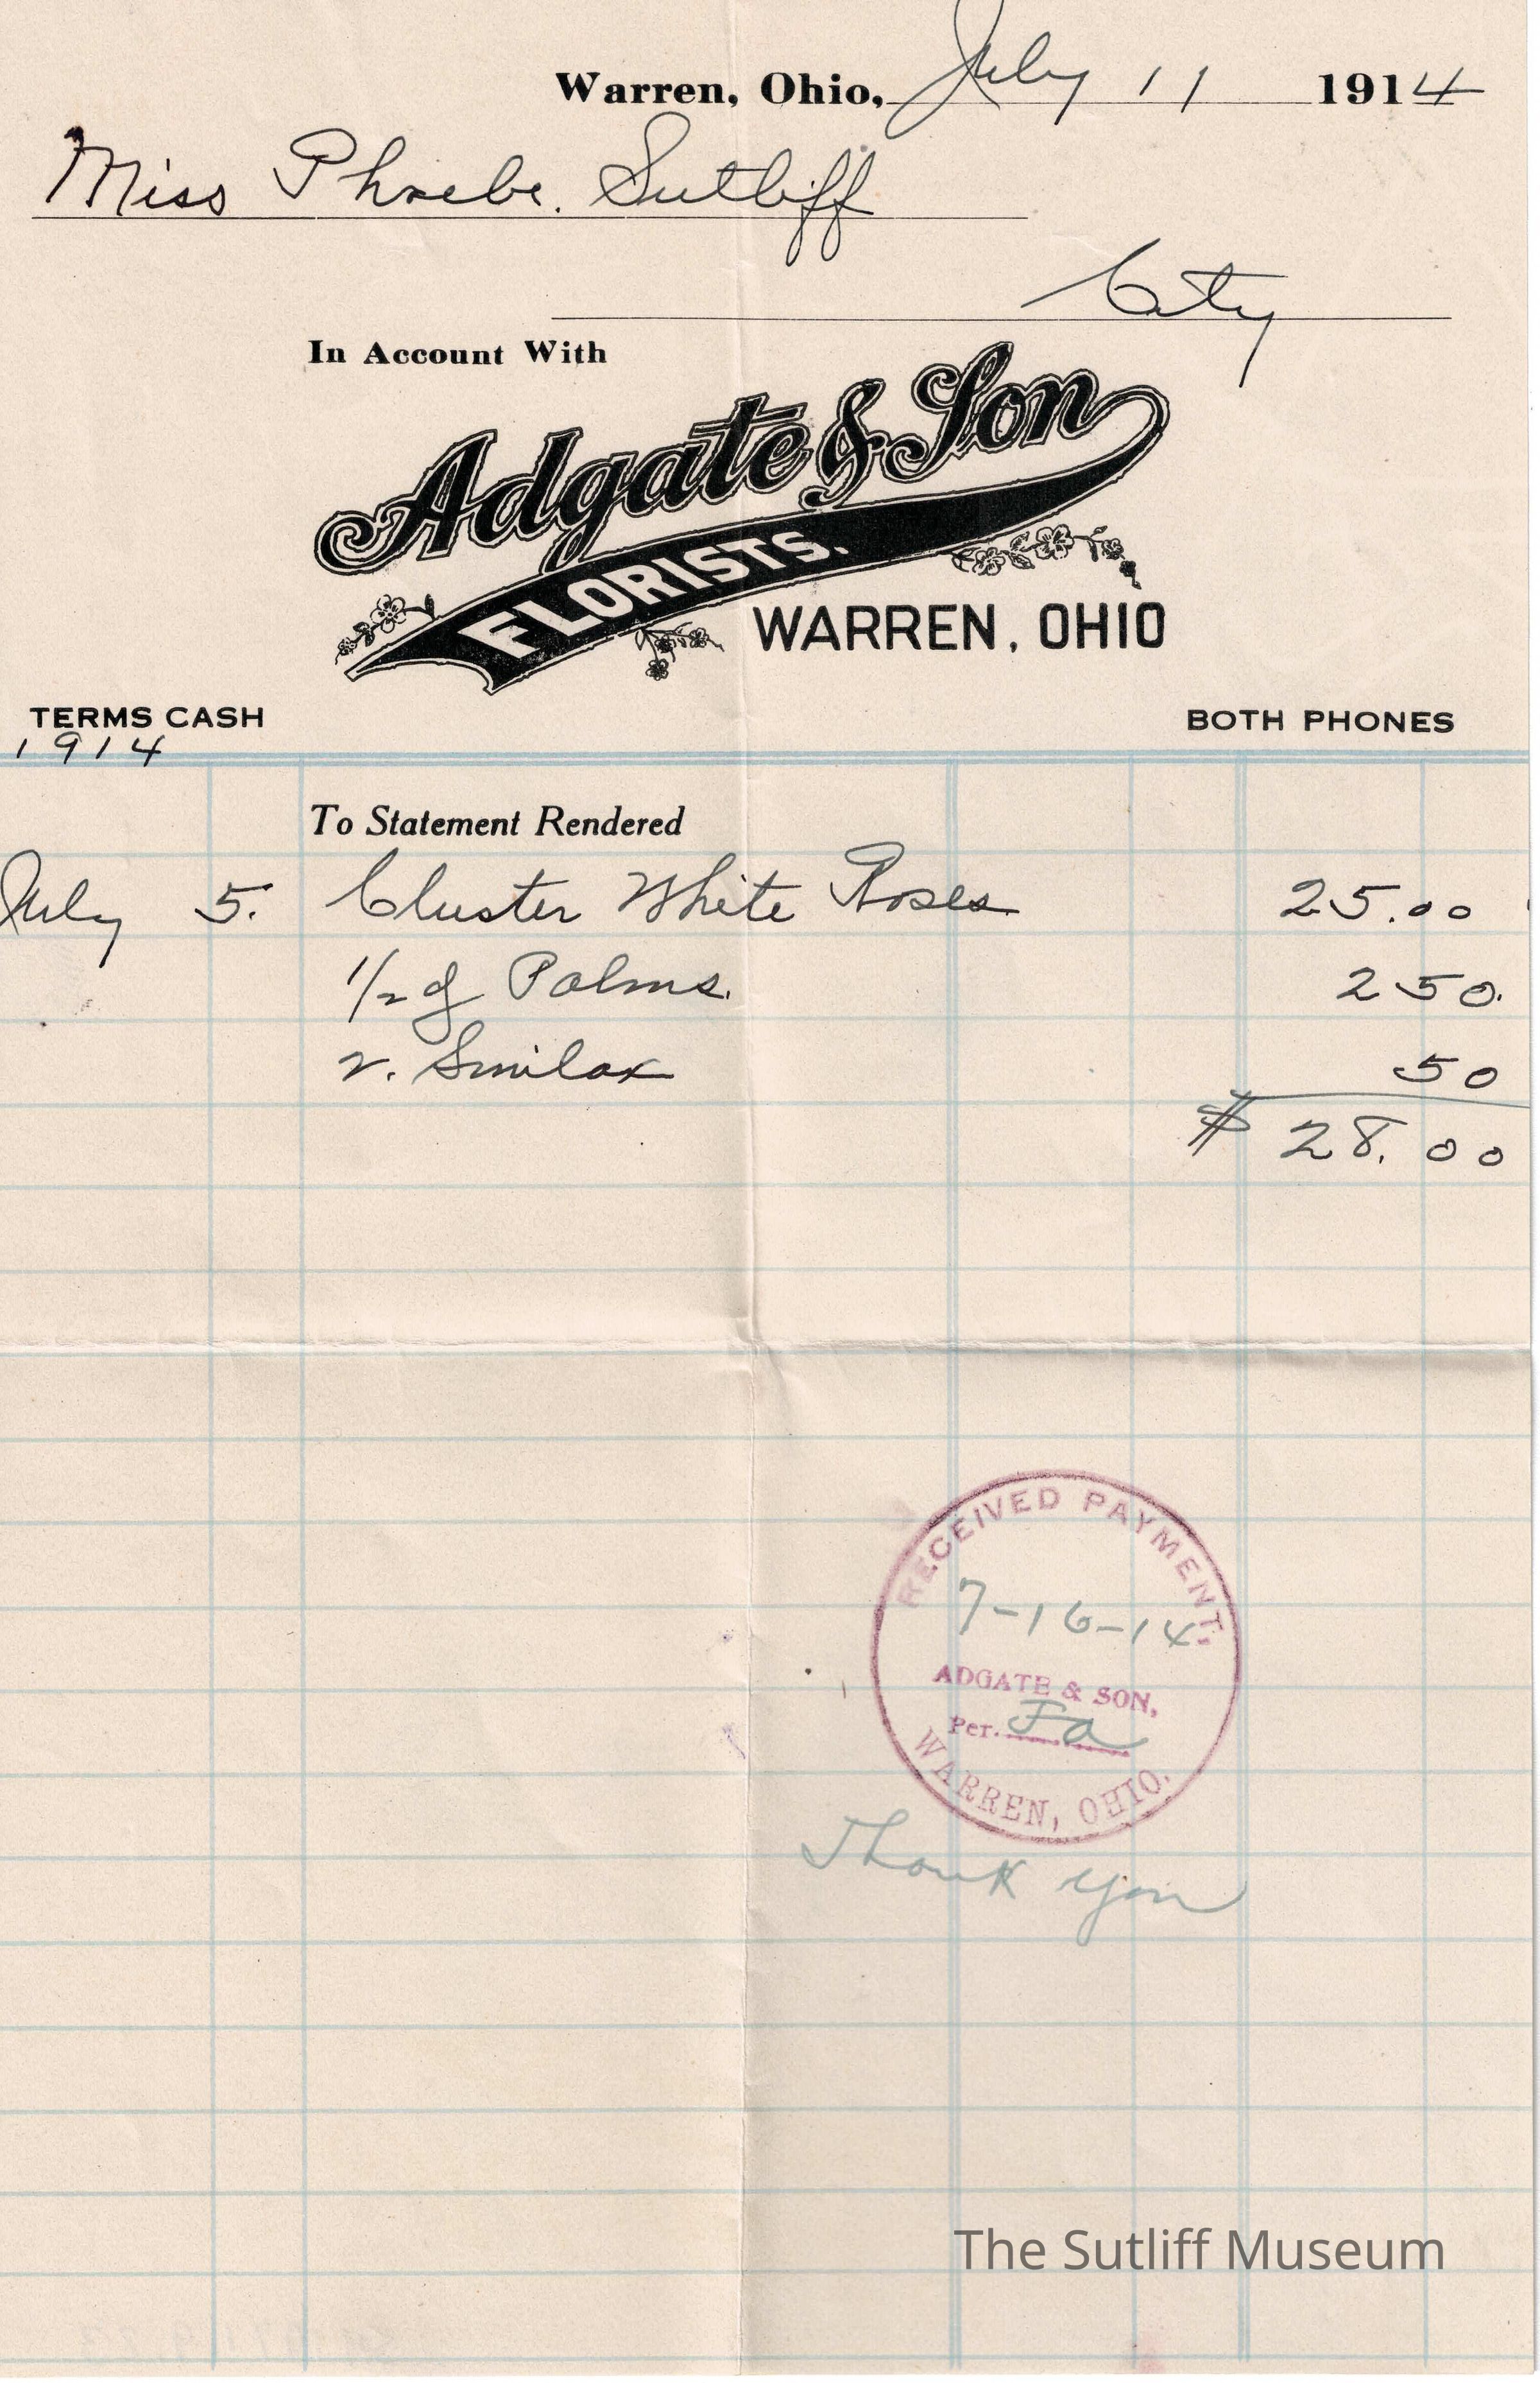 Warren, Ohio, July 11 1914
Miss Phoebe. Sutliff
City
In Account With
Adgate & Son
FLORISTS.
WARREN, OHIO
TERMS CASH
BOTH PHONES
1914
To Statement Rendered
July 5. Cluster White Roses 25.00
1/2 Palms. 250.
2. Smilax 50
$ 28.00
RECEIVED PAYMENT.
7-16-14
ADGATE & SON,
Per. Fa
WARREN, OHIO.
Thank you
The Sutliff Museum